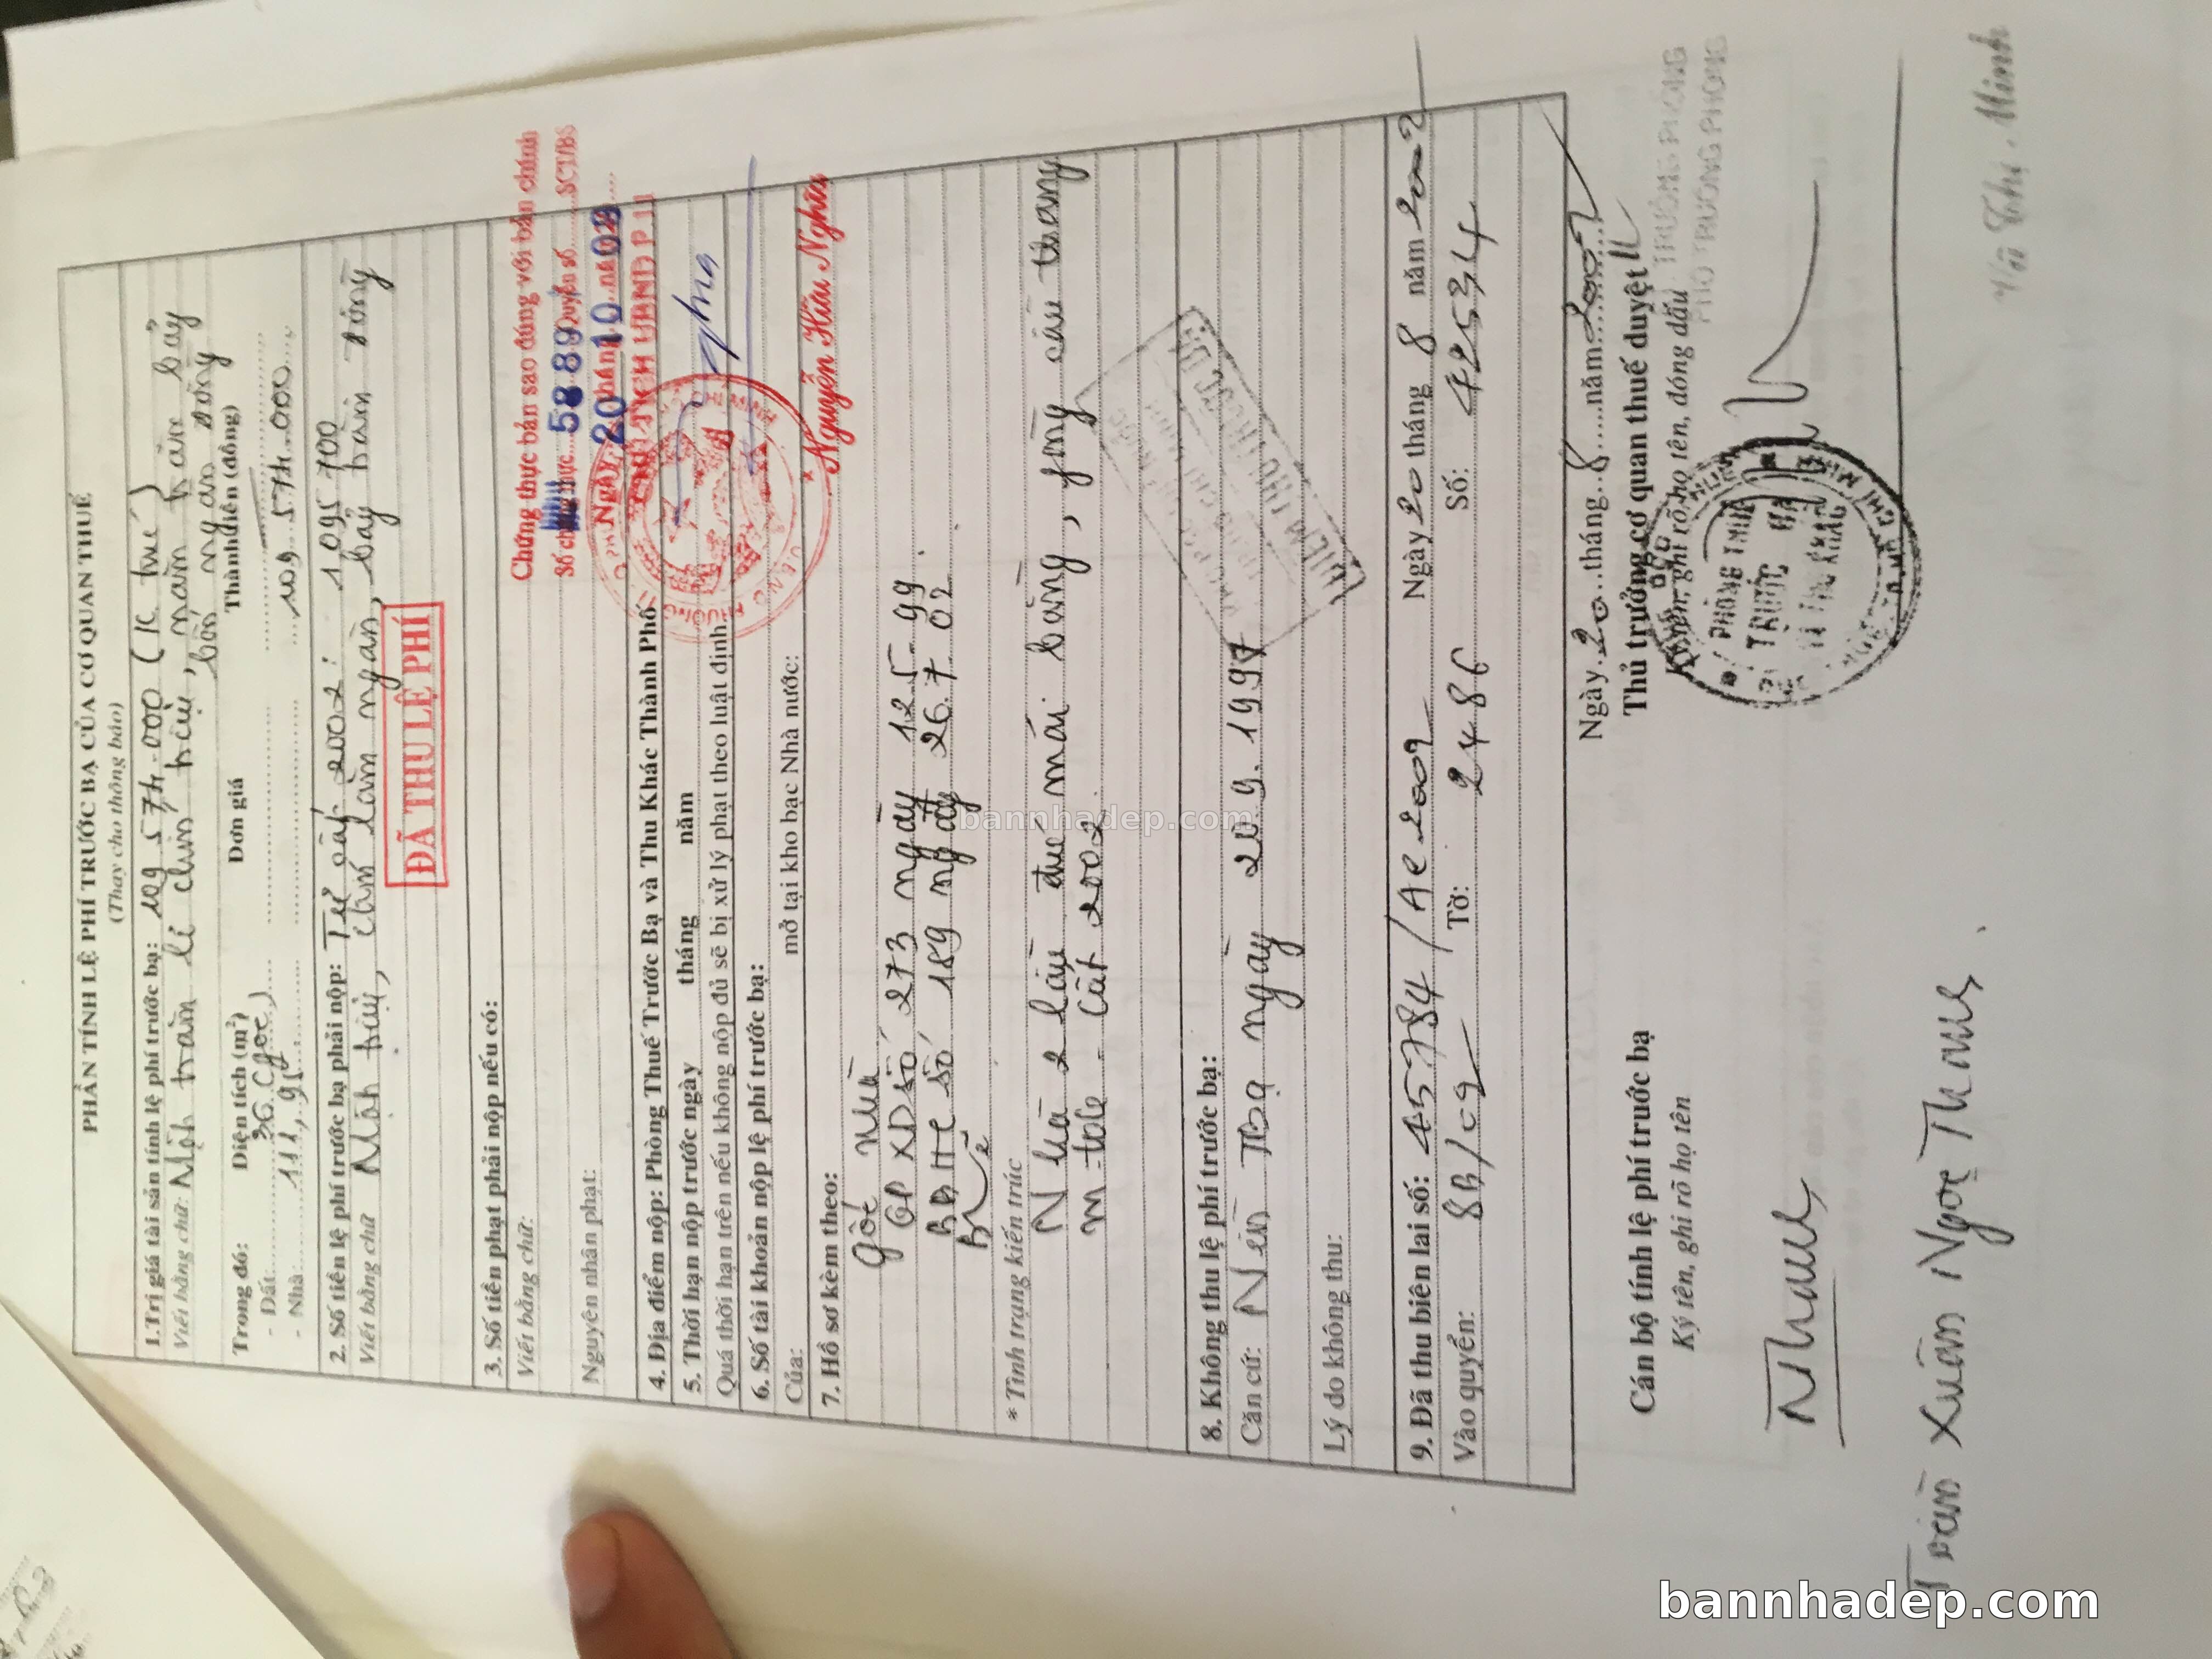 PHẦN TÍNH LỆ PHÍ TRƯỚC BẠ CỦA CƠ QUAN THUẾ
(Thay cho thông báo)
1.Trị giá tài sản tính lệ phí trước bạ: 109.574.000
Viết bằng chữ: Một trăm lẻ chín triệu, năm trăm bảy
bốn ngàn đồng
Trong đó: Diện tích (m²) Đơn giá Thành tiền (đồng)
- Đất: 36
- Nhà: 111,95 109.574.000
2. Số tiền lệ phí trước bạ phải nộp: 2002: 1.095.700
Viết bằng chữ Một triệu, chín lăm ngàn, bảy trăm đồng
ĐÃ THU LỆ PHÍ
3. Số tiền phạt phải nộp nếu có:
Viết bằng chữ:
Chứng thực bản sao đúng với bản chính
Số chứng thực 5889 Quyển số SCT/BS
Nguyên nhân phạt:
Ngày 20 tháng 10 năm 08
CHỦ TỊCH UBND P.11
4. Địa điểm nộp: Phòng Thuế Trước Bạ và Thu Khác Thành Phố
5. Thời hạn nộp trước ngày tháng năm
Quá thời hạn trên nếu không nộp đủ sẽ bị xử lý phạt theo luật định
6. Số tài khoản nộp lệ phí trước bạ:
Của: mở tại kho bạc Nhà nước:
Nguyễn Hữu Nghĩa
7. Hồ sơ kèm theo:
GP XD số 273 ngày 12.5.99
BBHC số 189 ngày 26.7.02
* Tình trạng kiến trúc
Nhà 2 lầu đúc mái bằng,
tole. Cất 2002
8. Không thu lệ phí trước bạ:
Căn cứ: Nền TBạ ngày 20.9.1997
Lý do không thu:
9. Đã thu biên lai số: 45784/AC 2002 Ngày 20 tháng 8 năm 2002
Vào quyển: 8B/09 Tờ: 2486 Số: 42534
Ngày 20 tháng 8 năm 2002
Cán bộ tính lệ phí trước bạ Thủ trưởng cơ quan thuế duyệt
Ký tên, ghi rõ họ tên Ký tên, ghi rõ họ tên, đóng dấu
TRƯỞNG PHÒNG
PHÓ TRƯỞNG PHÒNG
PHÒNG THUẾ
TRƯỚC BẠ
VÀ THU KHÁC
Trần Xuân Ngọc Thanh
Thị Minh
bannhadep.com
bannhadep.com